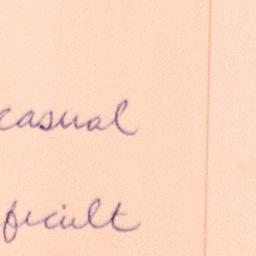 casual
ficult